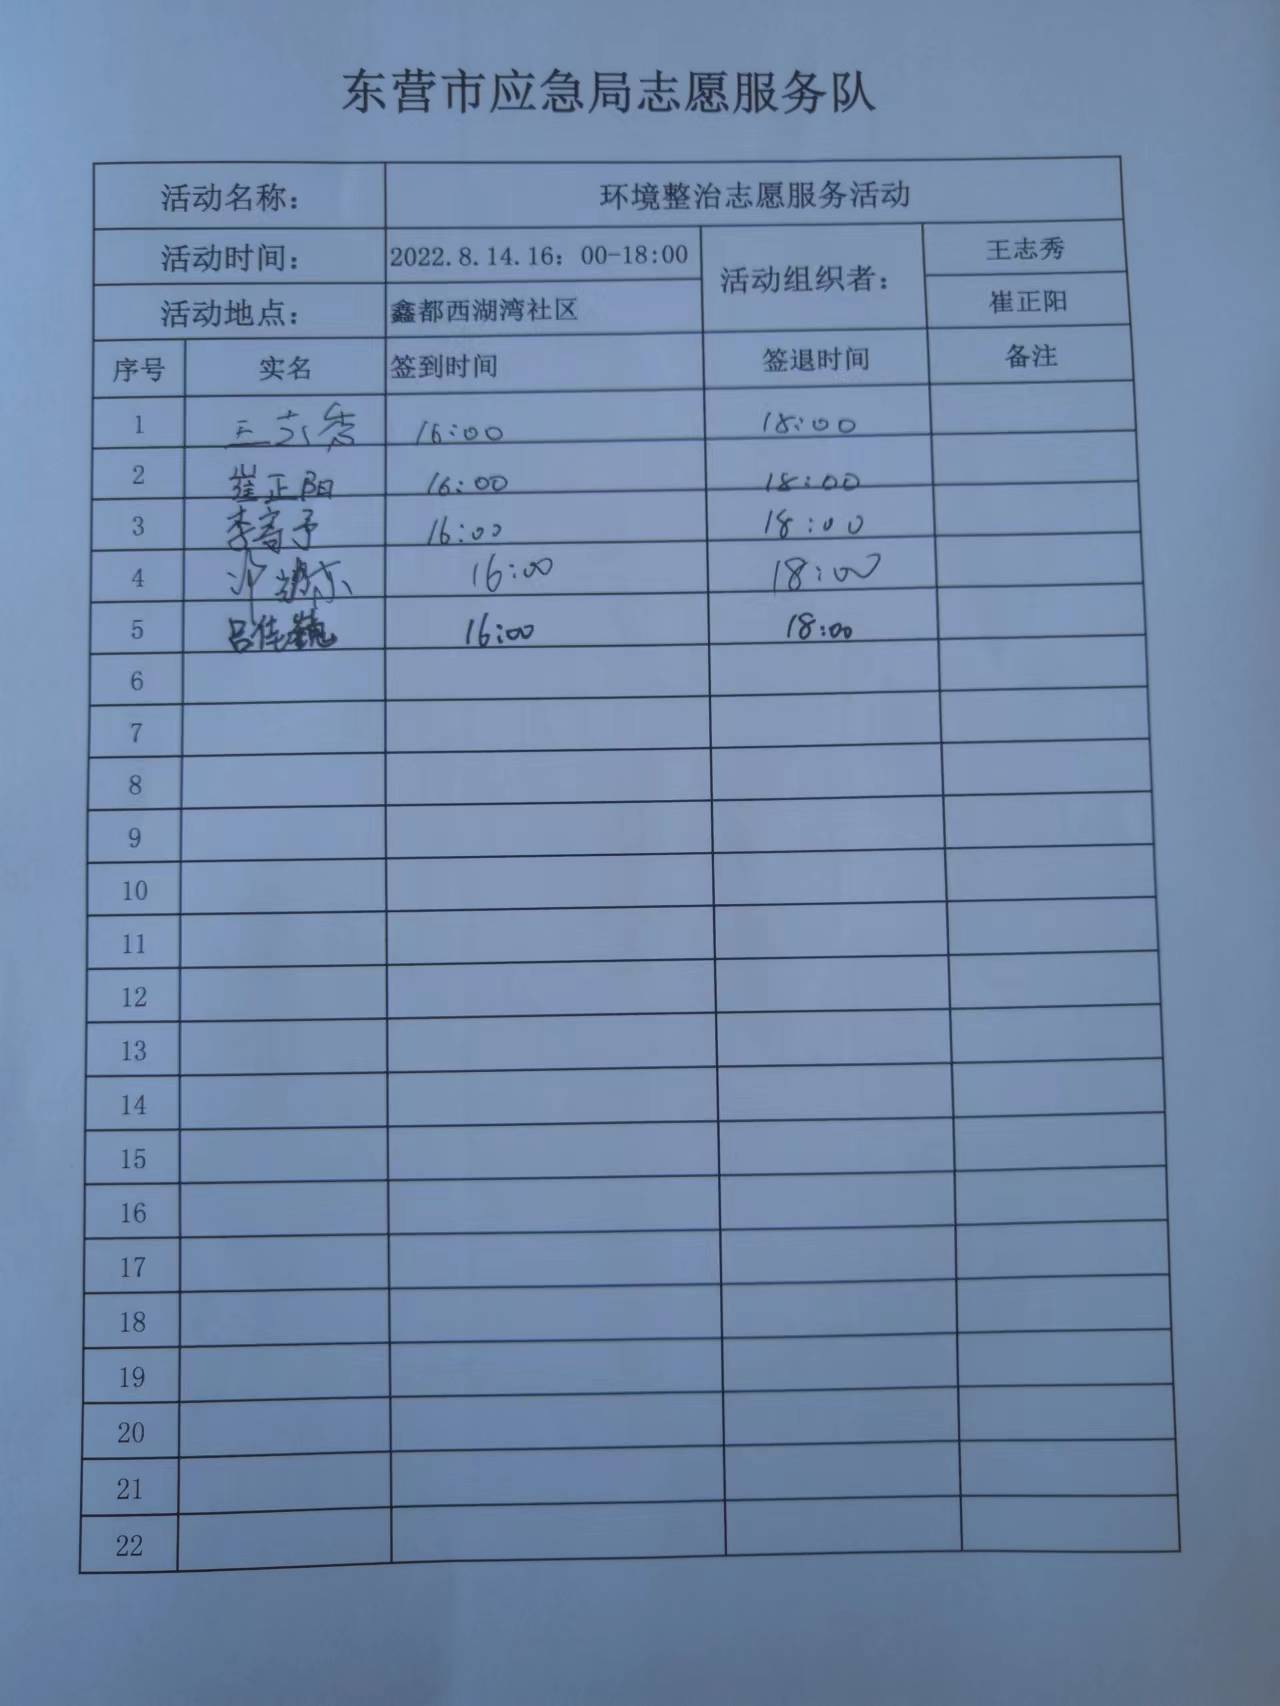 东营市应急局志愿服务队
活动名称： 环境整治志愿服务活动
活动时间： 2022.8.14.16：00-18:00 活动组织者： 王志秀
活动地点： 鑫都西湖湾社区 崔正阳
序号 实名 签到时间 签退时间 备注
1 王志秀 16:00 18:00
2 崔正阳 16:00 18:00
3 16:00 18:00
4 16:00 18:00
5 吕佳巍 16:00 18:00
6
7
8
9
10
11
12
13
14
15
16
17
18
19
20
21
22